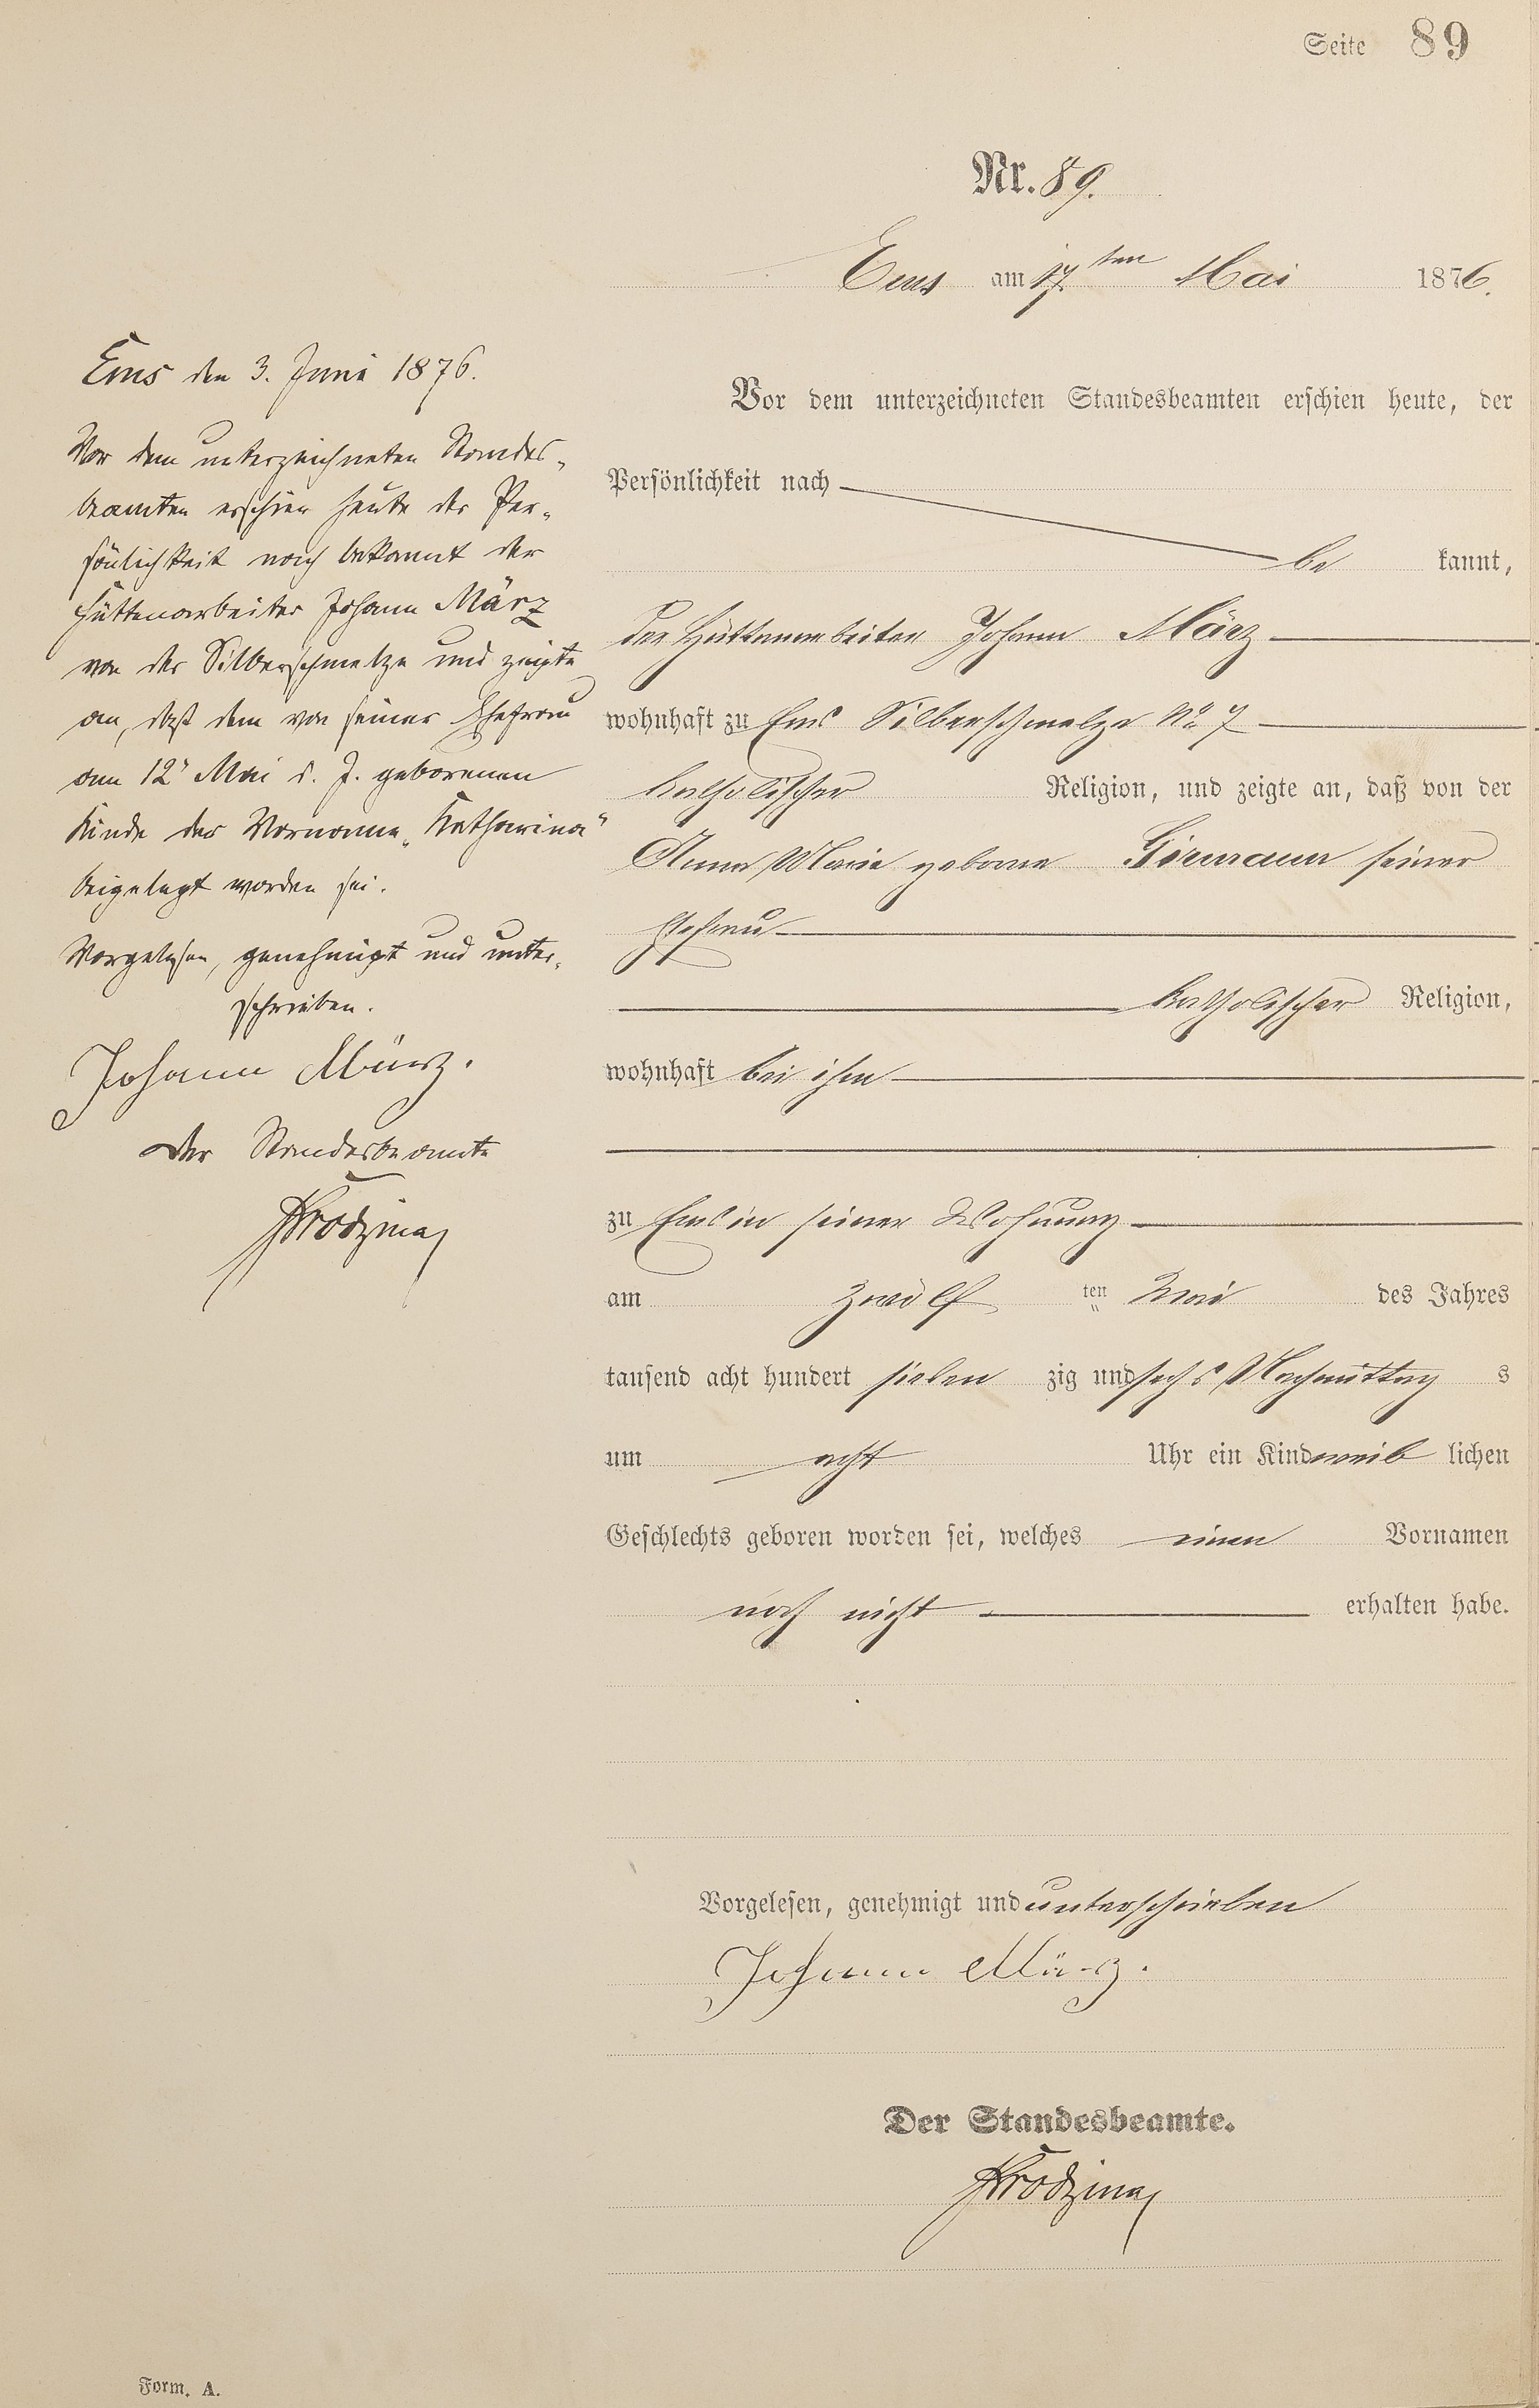 Seite 89
Nr. 89.
Ems am 17ten Mai 1876.
Vor dem unterzeichneten Standesbeamten erschien heute, der
Persönlichkeit nach
be kannt,
der Hüttenarbeiter Johann März
wohnhaft zu Ems Silberschmelze No 7
katholischer Religion, und zeigte an, daß von der
Anna Maria geborne seiner
Ehefrau
katholischer Religion,
wohnhaft bei ihm
zu Ems in seiner Wohnung
am zwölf ten Mai des Jahres
tausend acht hundert sieben zig und sechs Nachmittag s
um acht Uhr ein Kind weib lichen
Geschlechts geboren worden sei, welches einen Vornamen
noch nicht erhalten habe.
Vorgelesen, genehmigt und unterschrieben
Johann März.
Der Standesbeamte.
Ems den 3. Juni 1876.
Vor dem unterzeichneten Standes-
beamten erschien heute der Per-
sönlichkeit nach bekannt der
Hüttenarbeiter Johann März
von der Silberschmelze und zeigte
an, daß dem von seiner Ehefrau
am 12' Mai d. J. geborenen
Kinde der Vorname "Katharina"
beigelegt worden sei.
Vorgelesen, genehmigt und unter-
schrieben.
Johann März.
Der Standesbeamte
Form. A.